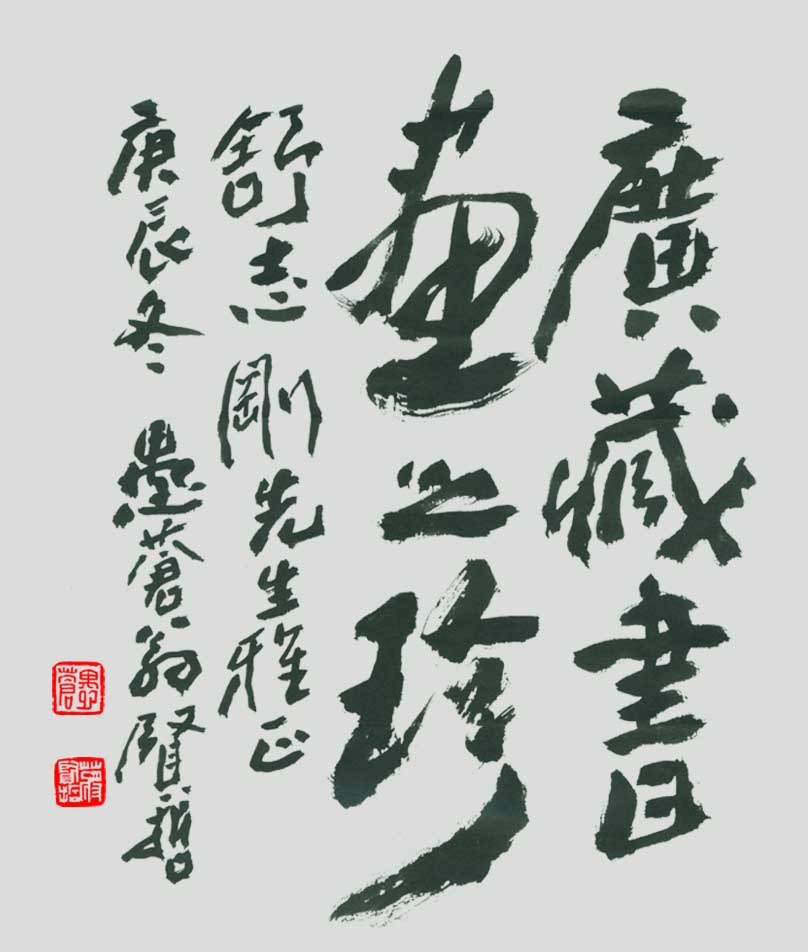 廣藏書
畫之珍
舒志剛先生雅正
庚辰冬 蒼翁賢哲